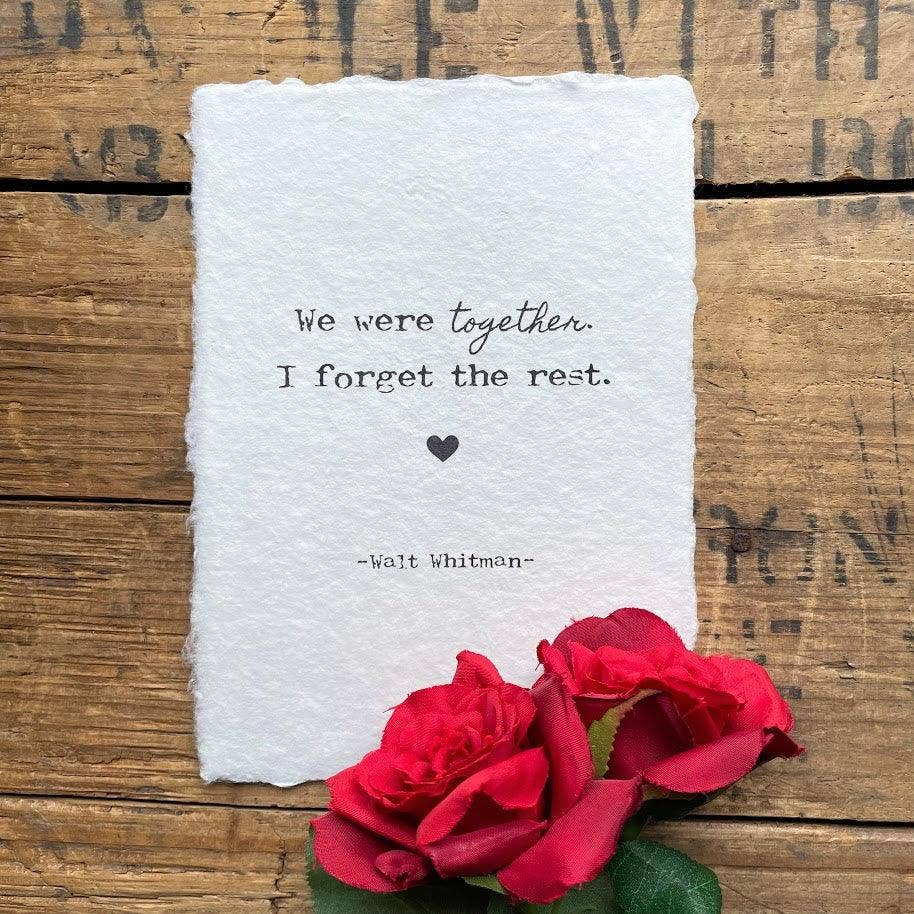 We were together.
I forget the rest.
-Walt Whitman-